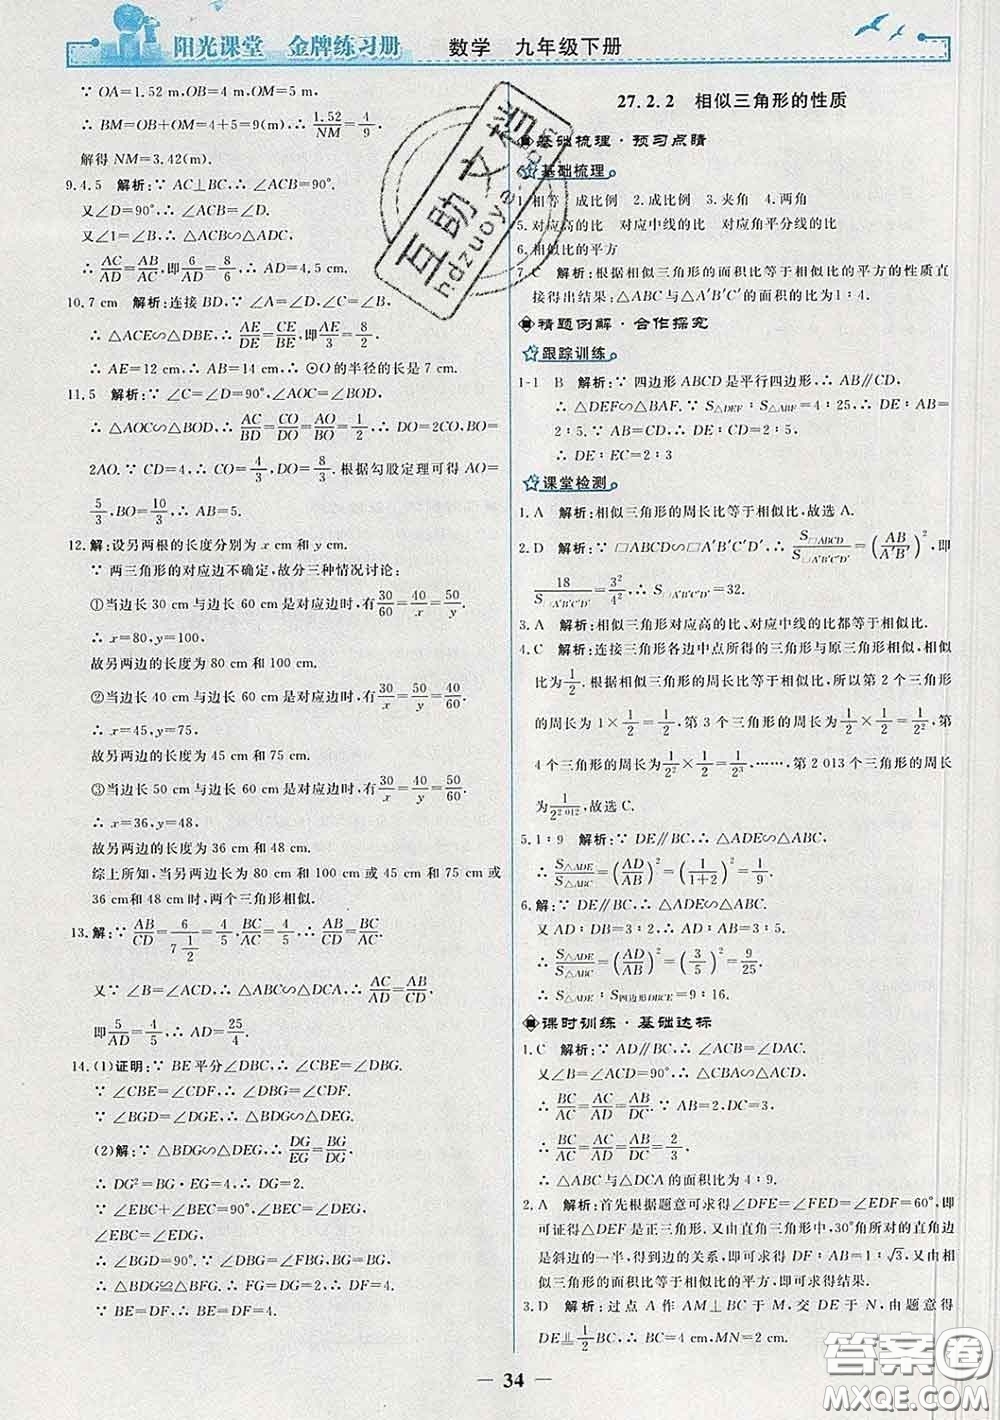 阳光课堂 金牌练习册 数学 九年级下册
∵ OA=1.52 m,OB=4 m,
∴ BM=OB+OM=4+5=9(m),∴ 1.52/NM=4/9.
解得 NM=3.42(m).
9.4.5 解析:∵ AC⊥BC,∴ ∠ACB=90°.
又∠D=90°,∴ ∠ACB=∠D.
又∠1=∠B,∴ △ACB∽△ADC,
∴ AC/AD=AB/AC,即6/AD=8/6,∴ AD=4.5 cm.
10.7 cm 解析:连接 BD,∵ ∠A=∠D,∠C=∠B,
∴ △ACE∽△DBE,∴ AE/DE=CE/BE,即AE/3=8/2,
∴ AE=12 cm,∴ AB=14 cm,∴ ⊙O 的半径的长是 7 cm.
11.5 解析:∵ ∠C=∠D=90°,∠AOC=∠BOD,
∴ △AOC∽△BOD,∴ AC/BD=CO/DO=AO/BO=1/2,∴ DO=2CO,BO=
2AO.∵ CD=4,∴ CO=4/3,DO=8/3.根据勾股定理可得 AO=
5/3,BO=10/3,∴ AB=5.
12.解:设另两根的长度分别为 x cm 和 y cm.
∵ 两三角形的对应边不确定,故分三种情况讨论:
①当边长 30 cm 与边长 60 cm 是对应边时,有30/60=40/x=50/y,
∴ x=80,y=100,
故另两边的长度为 80 cm 和 100 cm.
②当边长 40 cm 与边长 60 cm 是对应边时,有30/x=50/y=40/60,
∴ x=45,y=75,
故另两边的长度为 45 cm 和 75 cm.
③当边长 50 cm 与边长 60 cm 是对应边时,有30/x=40/y=50/60,
∴ x=36,y=48,
故另两边的长度为 36 cm 和 48 cm.
综上所知,当另两边的长度为 80 cm 和 100 cm 或 45 cm 和 75 cm 或
36 cm和 48 cm 时,两个三角形相似.
13.解:∵ AB/CD=6/7 1/2=4/5,BC/AC=4/5,∴ AB/CD=BC/AC.
又∵ ∠B=∠ACD,∴ △ABC∽△DCA,∴ AC/AD=AB/CD,
即5/AD=4/5,∴ AD=25/4.
14.(1)证明:∵ BE 平分∠DBC,∴ ∠CBE=∠DBG.
∵ ∠CBE=∠CDF,∴ ∠DBG=∠CDF.
∵ ∠BGD=∠DGE,∴ △BDG∽△DEG.
(2)解:∵ △BDG∽△DEG,∴ DG/EG=BG/DG,
∴ DG²=BG·EG=4,∴ DG=2.
∵ ∠EBC+∠BEC=90°,∠BEC=∠DEG,
∠EBC=∠EDG,
∴ ∠BGD=90°.∵ ∠DBG=∠FBG,BG=BG,
∴ △BDG≌△BFG.∴ FG=DG=2,∴ DF=4.
∵ BE=DF,∴ BE=DF=4.
27.2.2 相似三角形的性质
基础梳理·预习点睛
基础梳理
1.相等 成比例 2.成比例 3.夹角 4.两角
5.对应高的比 对应中线的比 对应角平分线的比
6.相似比的平方
7.C 解析:根据相似三角形的面积比等于相似比的平方的性质直
接得出结果:△ABC与△A′B′C′的面积的比为1∶4.
精题例解·合作探究
跟踪训练
1-1 B 解析:∵ 四边形 ABCD 是平行四边形,∴ AB∥CD,
∴ △DEF∽△BAF.∵ S△DEF∶S△ABF=4∶25,∴ DE∶AB=
2∶5.∵ AB=CD,
∴ DE∶EC=2∶3
课堂检测
1.A 解析:相似三角形的周长比等于相似比,故选 A.
2.D 解析:∵ □ABCD∽□A′B′C′D′,∴ S□ABCD/S□A′B′C′D′=(AB/A′B′)²,即
18/S□A′B′C′D′=3²/4²,∴ S□A′B′C′D′=32.
3.A 解析:相似三角形对应高的比、对应中线的比都等于相似比.
4.C 解析:连接三角形各边中点所得的三角形与原三角形相似,相似
比为1/2.根据相似三角形的周长比等于相似比,所以第 2 个三角形
的周长为 1×1/2=1/2,第 3 个三角形的周长为1/2×1/2=1/2²,第
4 个三角形的周长为1/2²×1/2=1/2³,……,第 2 013 个三角形的周长
为1/2^2 012,故选 C.
5.1∶9 解析:∵ DE∥BC,∴ △ADE∽△ABC.
∴ S△ADE/S△ABC=(AD/AB)²=(1/1+2)²=1/9.
6.解:∵ DE∥BC,∴ △ADE∽△ABC.
又∵ AD∶DB=3∶2,∴ AD∶AB=3∶5.
∴ S△ADE/S△ABC=(AD/AB)²=(3/5)²=9/25.
∴ S△ADE∶S四边形DBCE=9∶16.
课时训练·基础达标
1.C 解析:∵ AD∥BC,∴ ∠ACB=∠DAC.
又∠B=∠ACD=90°,∴ △CBA∽△ACD,
∴ BC/AC=AC/AD=AB/DC.∵ AB=2,DC=3,
∴ BC/AC=AC/AD=AB/DC=2/3,
∴ △ABC 与△DCA 的面积比为 4∶9.
2.A 解析:首先根据题意可求得∠DFE=∠FED=∠EDF=60°,即
可证得△DEF 是正三角形.又由直角三角形中,30°角所对的直角边
是斜边的一半,得到边的关系,即可求得 DF∶AB=1∶√3,又由相
似三角形的面积比等于相似比的平方,即可求得结果.
3.D 解析:过点 A 作 AM⊥BC 于 M,交 DE 于 N,由题意得
DE∥1/2BC,∴ BC=4 cm,MN=2 cm.
34
互助文档
hdzuoye.com
答案圈
MXQE.COM